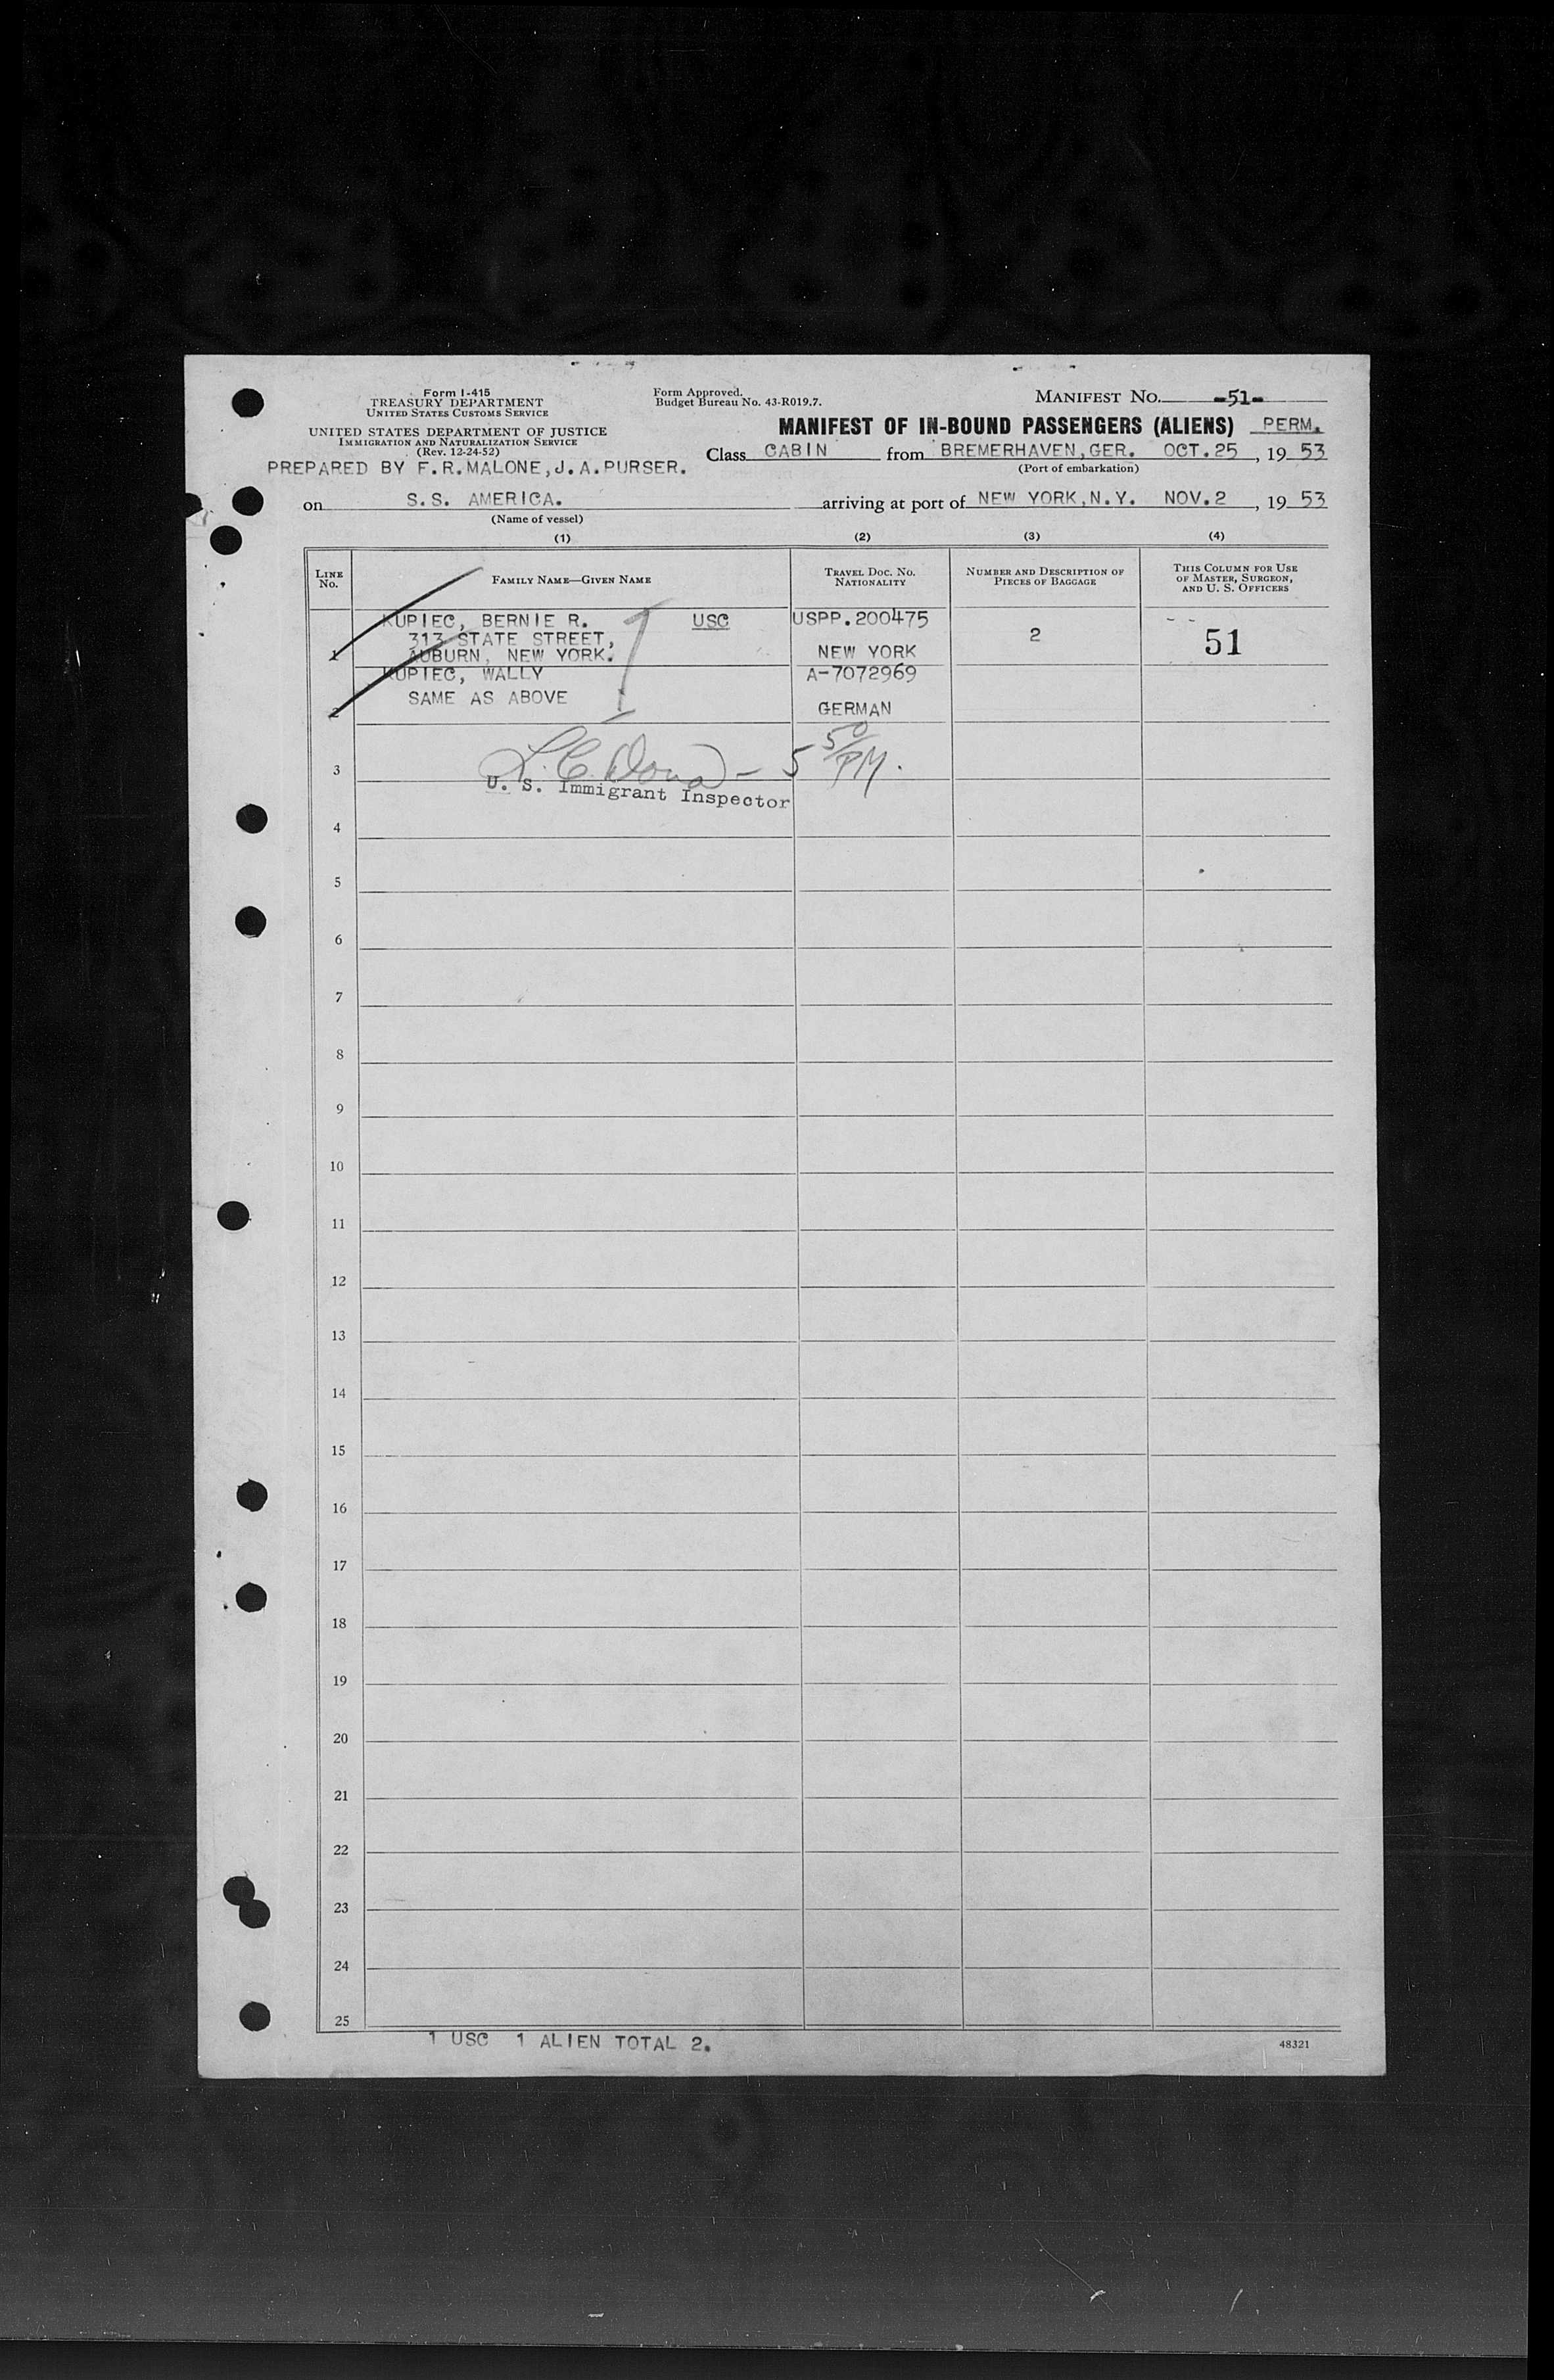 Form I-415
TREASURY DEPARTMENT
UNITED STATES CUSTOMS SERVICE
UNITED STATES DEPARTMENT OF JUSTICE
IMMIGRATION AND NATURALIZATION SERVICE
(Rev. 12-24-52)
PREPARED BY F.R.MALONE,J.A.PURSER.
Form Approved.
Budget Bureau No. 43-R019.7.
MANIFEST NO. -51-
MANIFEST OF IN-BOUND PASSENGERS (ALIENS) PERM.
Class CABIN from BREMERHAVEN,GER. OCT.25, 1953
(Port of embarkation)
on S.S. AMERICA. arriving at port of NEW YORK,N.Y. NOV.2, 1953
(Name of vessel)
(1) (2) (3) (4)
LINE NO.
FAMILY NAME—GIVEN NAME
TRAVEL DOC. NO.
NATIONALITY
NUMBER AND DESCRIPTION OF
PIECES OF BAGGAGE
THIS COLUMN FOR USE
OF MASTER, SURGEON,
AND U. S. OFFICERS
KUPIEC, BERNIE R. USC USPP.200475
313 STATE STREET, 2 51
1 AUBURN, NEW YORK. NEW YORK
KUPIEC, WALLY A-7072969
SAME AS ABOVE
2 GERMAN
3 L. C. 5 50/PM.
U. S. Immigrant Inspector
4
5
6
7
8
9
10
11
12
13
14
15
16
17
18
19
20
21
22
23
24
25
1 USC 1 ALIEN TOTAL 2.
48321